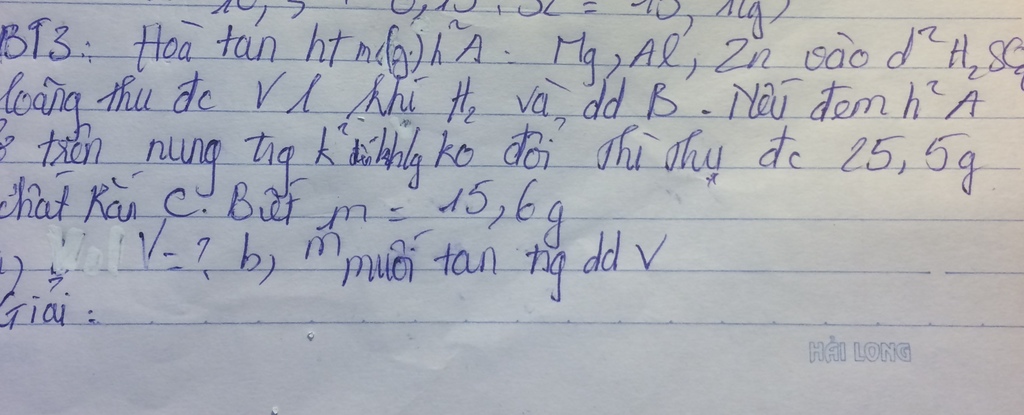 10, 5 0,15 . 32 = 10, 11(g)
BT3: Hoà tan ht m(g) h² A : Mg, Al, Zn vào d² H₂SO₄
loãng thu đc V l khí H₂ và dd B. Nếu đem h² A
trên nung tṛg k² ko đổi thì thu đc 25,5g
chất rắn C. Biết m = 15,6g
V = ? b, m muối tan tṛg dd V
Giải :
HẢI LONG